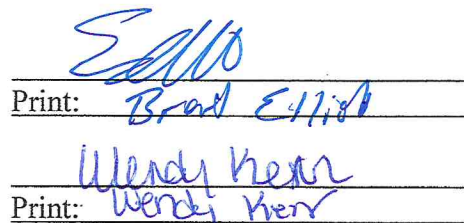 Print: Brad Elliott
Wendy Kerr
Print: Wendy Kerr